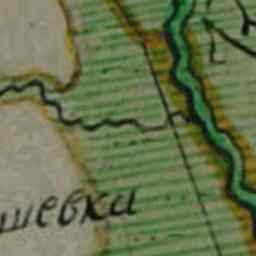 шевка